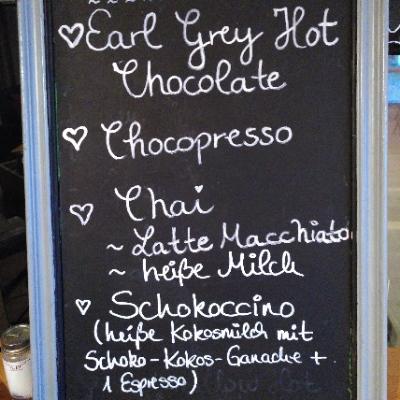 Earl Grey Hot
Chocolate
Chocopresso
Chai
~ Latte Macchiato
~ heiße Milch
Schokoccino
(heiße Kokosmilch mit
Schoko-Kokos-Ganache +
1 Espresso)